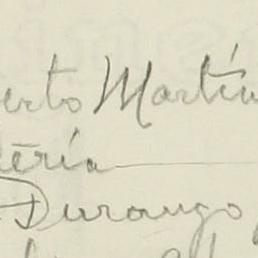 erto Martín
tería
Durango